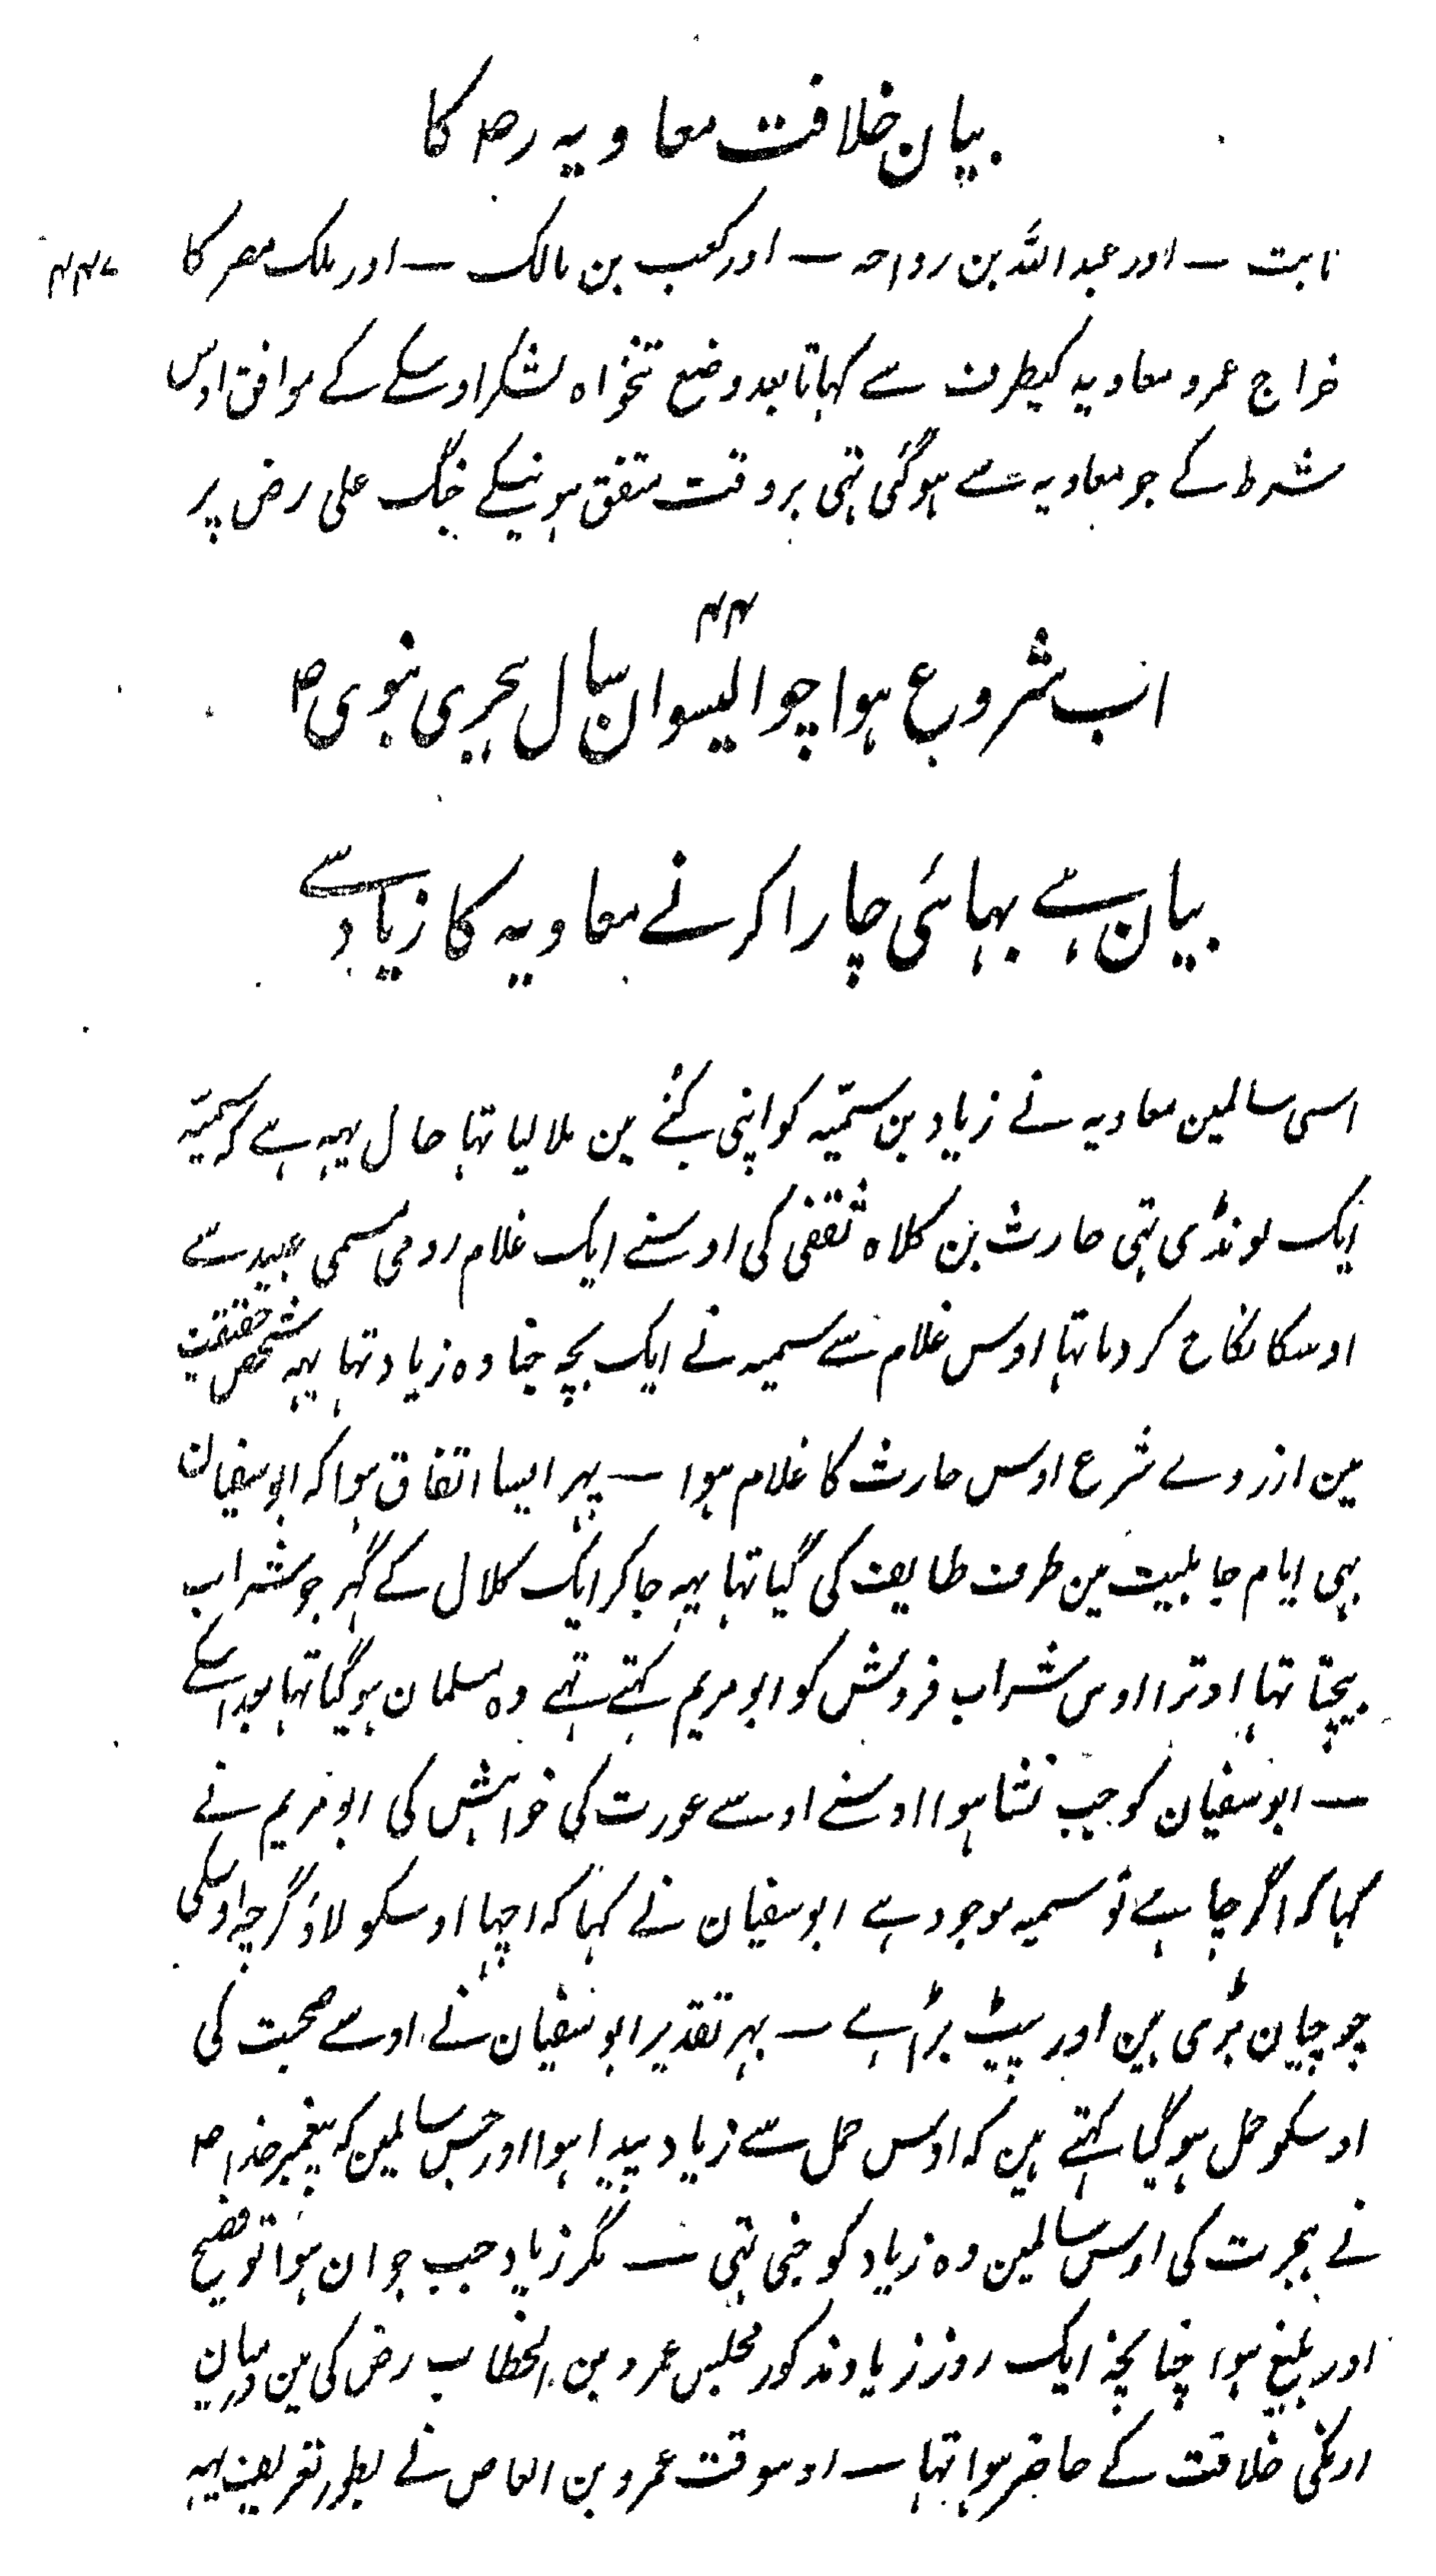 بیان خلافت معاویہ رض کا
ثابت — اور عبد اللہ بن رواحہ — اور کعب بن مالک — اور ملک مصر کا
خراج عمرو معاویہ کیطرف سے کہاتا بعد وضع تنخواہ لشکر اوسکے کے موافق اوس
شرط کے جو معاویہ سے ہوگئی تہی بروقت متفق ہونیکے جنگ علی رض پر
۴۴
اب شروع ہوا چوالیسوان سال ہجری نبوی ص
بیان ہے بہائی چارا کرنے معاویہ کا زیاد سے
اسی سالمین معاویہ نے زیاد بن سمّیہ کو اپنی کنبے مین ملا لیا تہا حال یہہ ہے کہ سمیّہ
ایک لونڈی تہی حارث بن کلاہ ثقفی کی اوسنے ایک غلام رومی مسمی عبید سے
اوسکا نکاح کر دیا تہا اوس غلام سے سمیہ نے ایک بچہ جنا وہ زیاد تہا یہہ شخص حقیقت
مین ازروے شرع اوس حارث کا غلام ہوا — پہر ایسا اتفاق ہوا کہ ابوسفیان
بہی ایام جاہلیت مین طرف طایف کی گیا تہا یہہ جاکر ایک کلال کے گہر جو شراب
بیچتا تہا اوترا اوس شراب فروش کو ابو مریم کہتے تہے وہ مسلمان ہوگیا تہا بعد اسکے
— ابو سفیان کو جب نشا ہوا اوسنے اوسے عورت کی خواہش کی ابو مریم نے
کہا کہ اگر چاہے تو سمیہ موجود ہے ابو سفیان نے کہا کہ اچہا اوسکو لاؤ گرچہ اوسکی
چوچیان بڑی ہین اور پیٹ بڑا ہے — بہر تقدیر ابو سفیان نے اوسے صحبت کی
اوسکو حمل ہوگیا کہتے ہین کہ اوس حمل سے زیاد پیدا ہوا اور جس سالمین کہ پیغمبر خدا ص
نے ہجرت کی اوس سالمین وہ زیاد کو جنی تہی — مگر زیاد جب جوان ہوا تو فصیح
اور بلیغ ہوا چنانچہ ایک روز زیاد مذکور مجلس عمرو بن الخطاب رض کی مین درمیان
اونکی خلافت کے حاضر ہوا تہا — اوسوقت عمرو بن العاص نے بطور تعریف یہہ